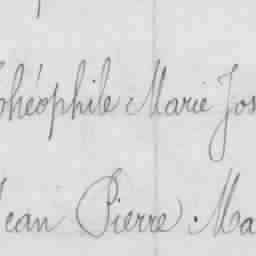 Théophile Marie Jos
Jean Pierre. Ma